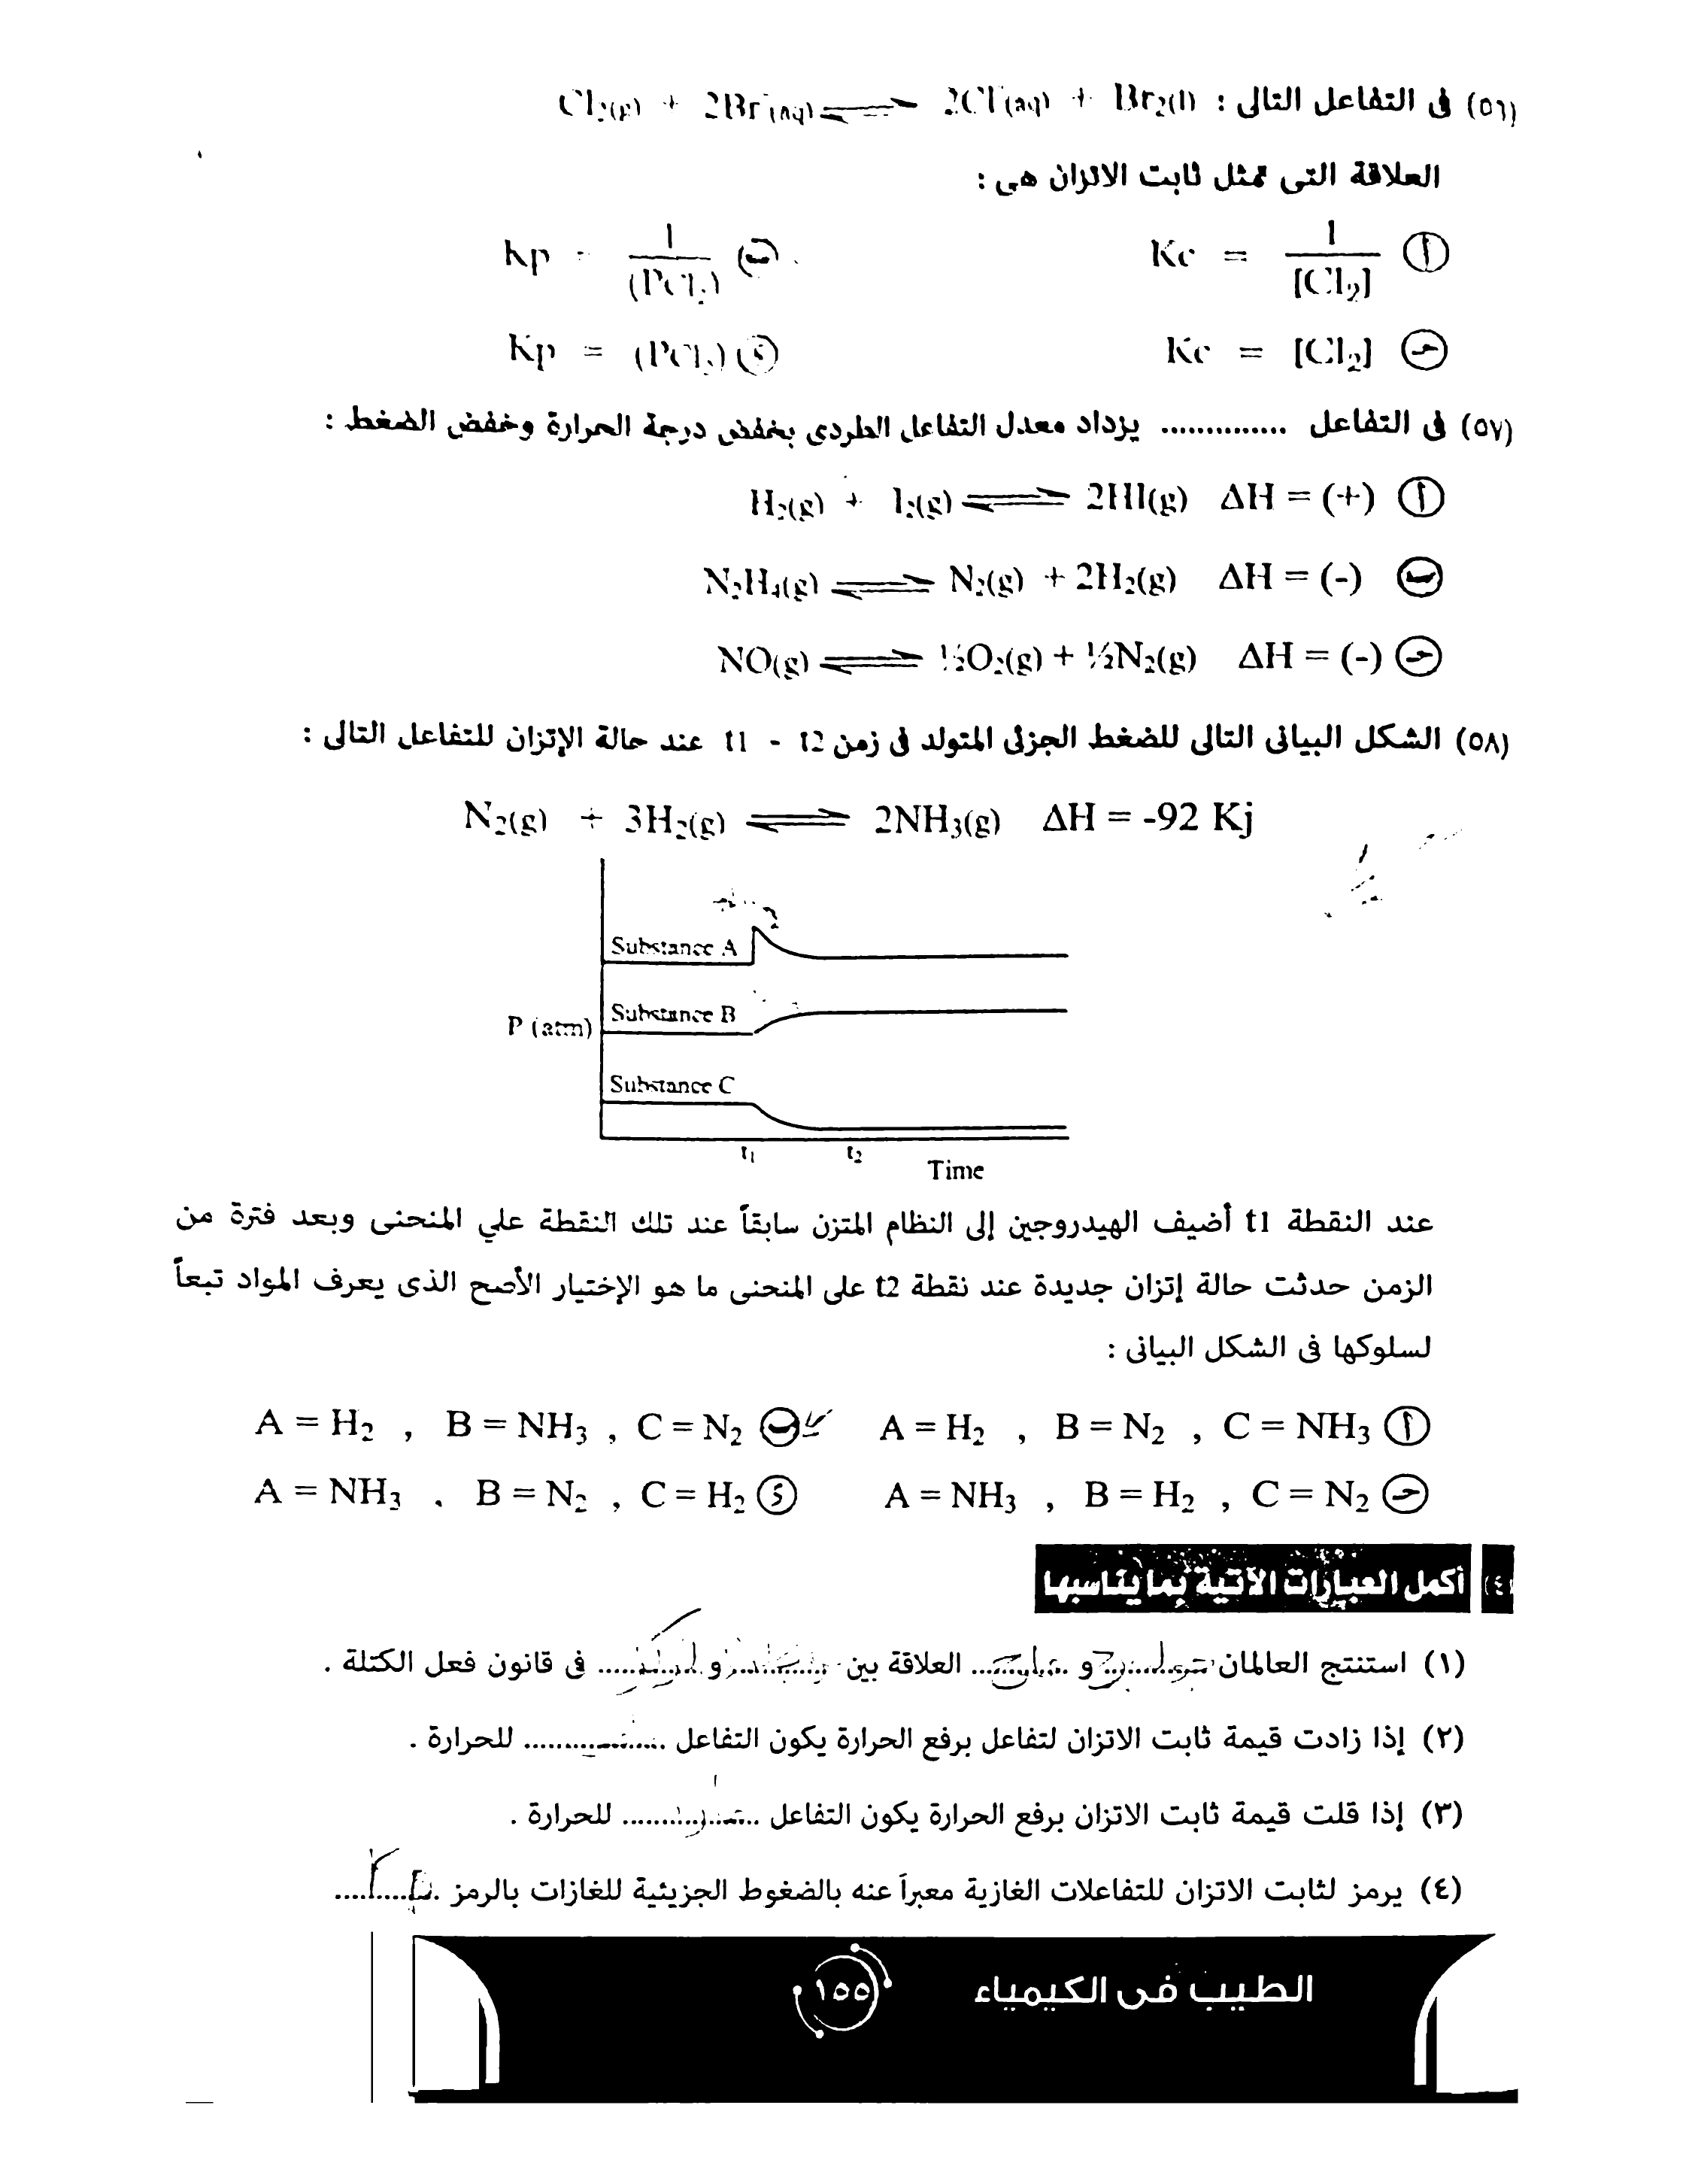 (٥٦) فى التفاعل التالى : Cl₂(g) + 2Br⁻(aq) ⇌ 2Cl⁻(aq) + Br₂(l)
العلاقة التى تمثل ثابت الاتزان هى :
أ Kc = 1/[Cl₂] ب Kp = 1/(PCl₂)
جـ Kc = [Cl₂] د Kp = (PCl₂)
(٥٧) فى التفاعل .............. يزداد معدل التفاعل الطردى بخفض درجة الحرارة وخفض الضغط :
أ H₂(g) + I₂(g) ⇌ 2HI(g) ΔH = (+)
ب N₂H₄(g) ⇌ N₂(g) + 2H₂(g) ΔH = (-)
جـ NO(g) ⇌ ½O₂(g) + ½N₂(g) ΔH = (-)
(٥٨) الشكل البيانى التالى للضغط الجزئى المتولد فى زمن t1 - t2 عند حالة الإتزان للتفاعل التالى :
N₂(g) + 3H₂(g) ⇌ 2NH₃(g) ΔH = -92 Kj
Substance A
Substance B
P (atm)
Substance C
t₁ t₂
Time
عند النقطة t1 أضيف الهيدروجين إلى النظام المتزن سابقاً عند تلك النقطة علي المنحنى وبعد فترة من
الزمن حدثت حالة إتزان جديدة عند نقطة t2 على المنحنى ما هو الإختيار الأصح الذى يعرف المواد تبعاً
لسلوكها فى الشكل البيانى :
أ A = H₂ , B = N₂ , C = NH₃ ب A = H₂ , B = NH₃ , C = N₂
جـ A = NH₃ , B = H₂ , C = N₂ د A = NH₃ , B = N₂ , C = H₂
(٤) أكمل العبارات الآتية بما يناسبها
(١) استنتج العالمان جولدبرج و فاج العلاقة بين ............ و ............ فى قانون فعل الكتلة .
(٢) إذا زادت قيمة ثابت الاتزان لتفاعل برفع الحرارة يكون التفاعل .................. للحرارة .
(٣) إذا قلت قيمة ثابت الاتزان برفع الحرارة يكون التفاعل .................. للحرارة .
(٤) يرمز لثابت الاتزان للتفاعلات الغازية معبراً عنه بالضغوط الجزيئية للغازات بالرمز ..............
الطيب فى الكيمياء
١٥٥